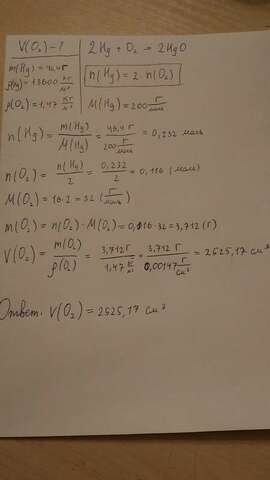 V(O₂) - ?
m(Hg) = 46,4 г
ρ(Hg) = 13600 кг/м³
ρ(O₂) = 1,47 кг/м³
2Hg + O₂ = 2HgO
n(Hg) = 2 · n(O₂)
M(Hg) = 200 г/моль
n(Hg) = m(Hg)/M(Hg) = 46,4 г/200 г/моль = 0,232 моль
n(O₂) = n(Hg)/2 = 0,232/2 = 0,116 (моль)
M(O₂) = 16·2 = 32 (г/моль)
m(O₂) = n(O₂) · M(O₂) = 0,116 · 32 = 3,712 (г)
V(O₂) = m(O₂)/ρ(O₂) = 3,712 г/1,47 кг/м³ = 3,712 г/0,00147 г/см³ = 2525,17 см³
Ответ: V(O₂) = 2525,17 см³